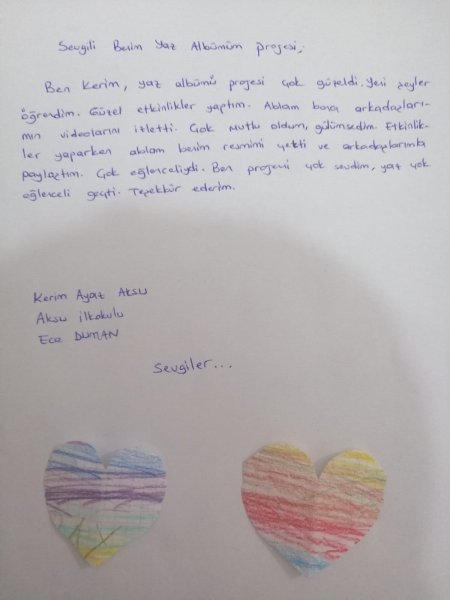 Sevgili Benim Yaz Albümüm projesi,
Ben Kerim, yaz albümü projesi çok güzeldi. Yeni şeyler
öğrendim. Güzel etkinlikler yaptım. Ablam bana arkadaşları-
mın videolarını izletti. Çok mutlu oldum, gülümsedim. Etkinlik-
ler yaparken ablam benim resmimi çekti ve arkadaşlarımla
paylaştım. Çok eğlenceliydi. Ben projemi çok sevdim, yaz çok
eğlenceli geçti. Teşekkür ederim.
Kerim Ayaz Aksu
Aksu ilkokulu
Ece DUMAN
Sevgiler...